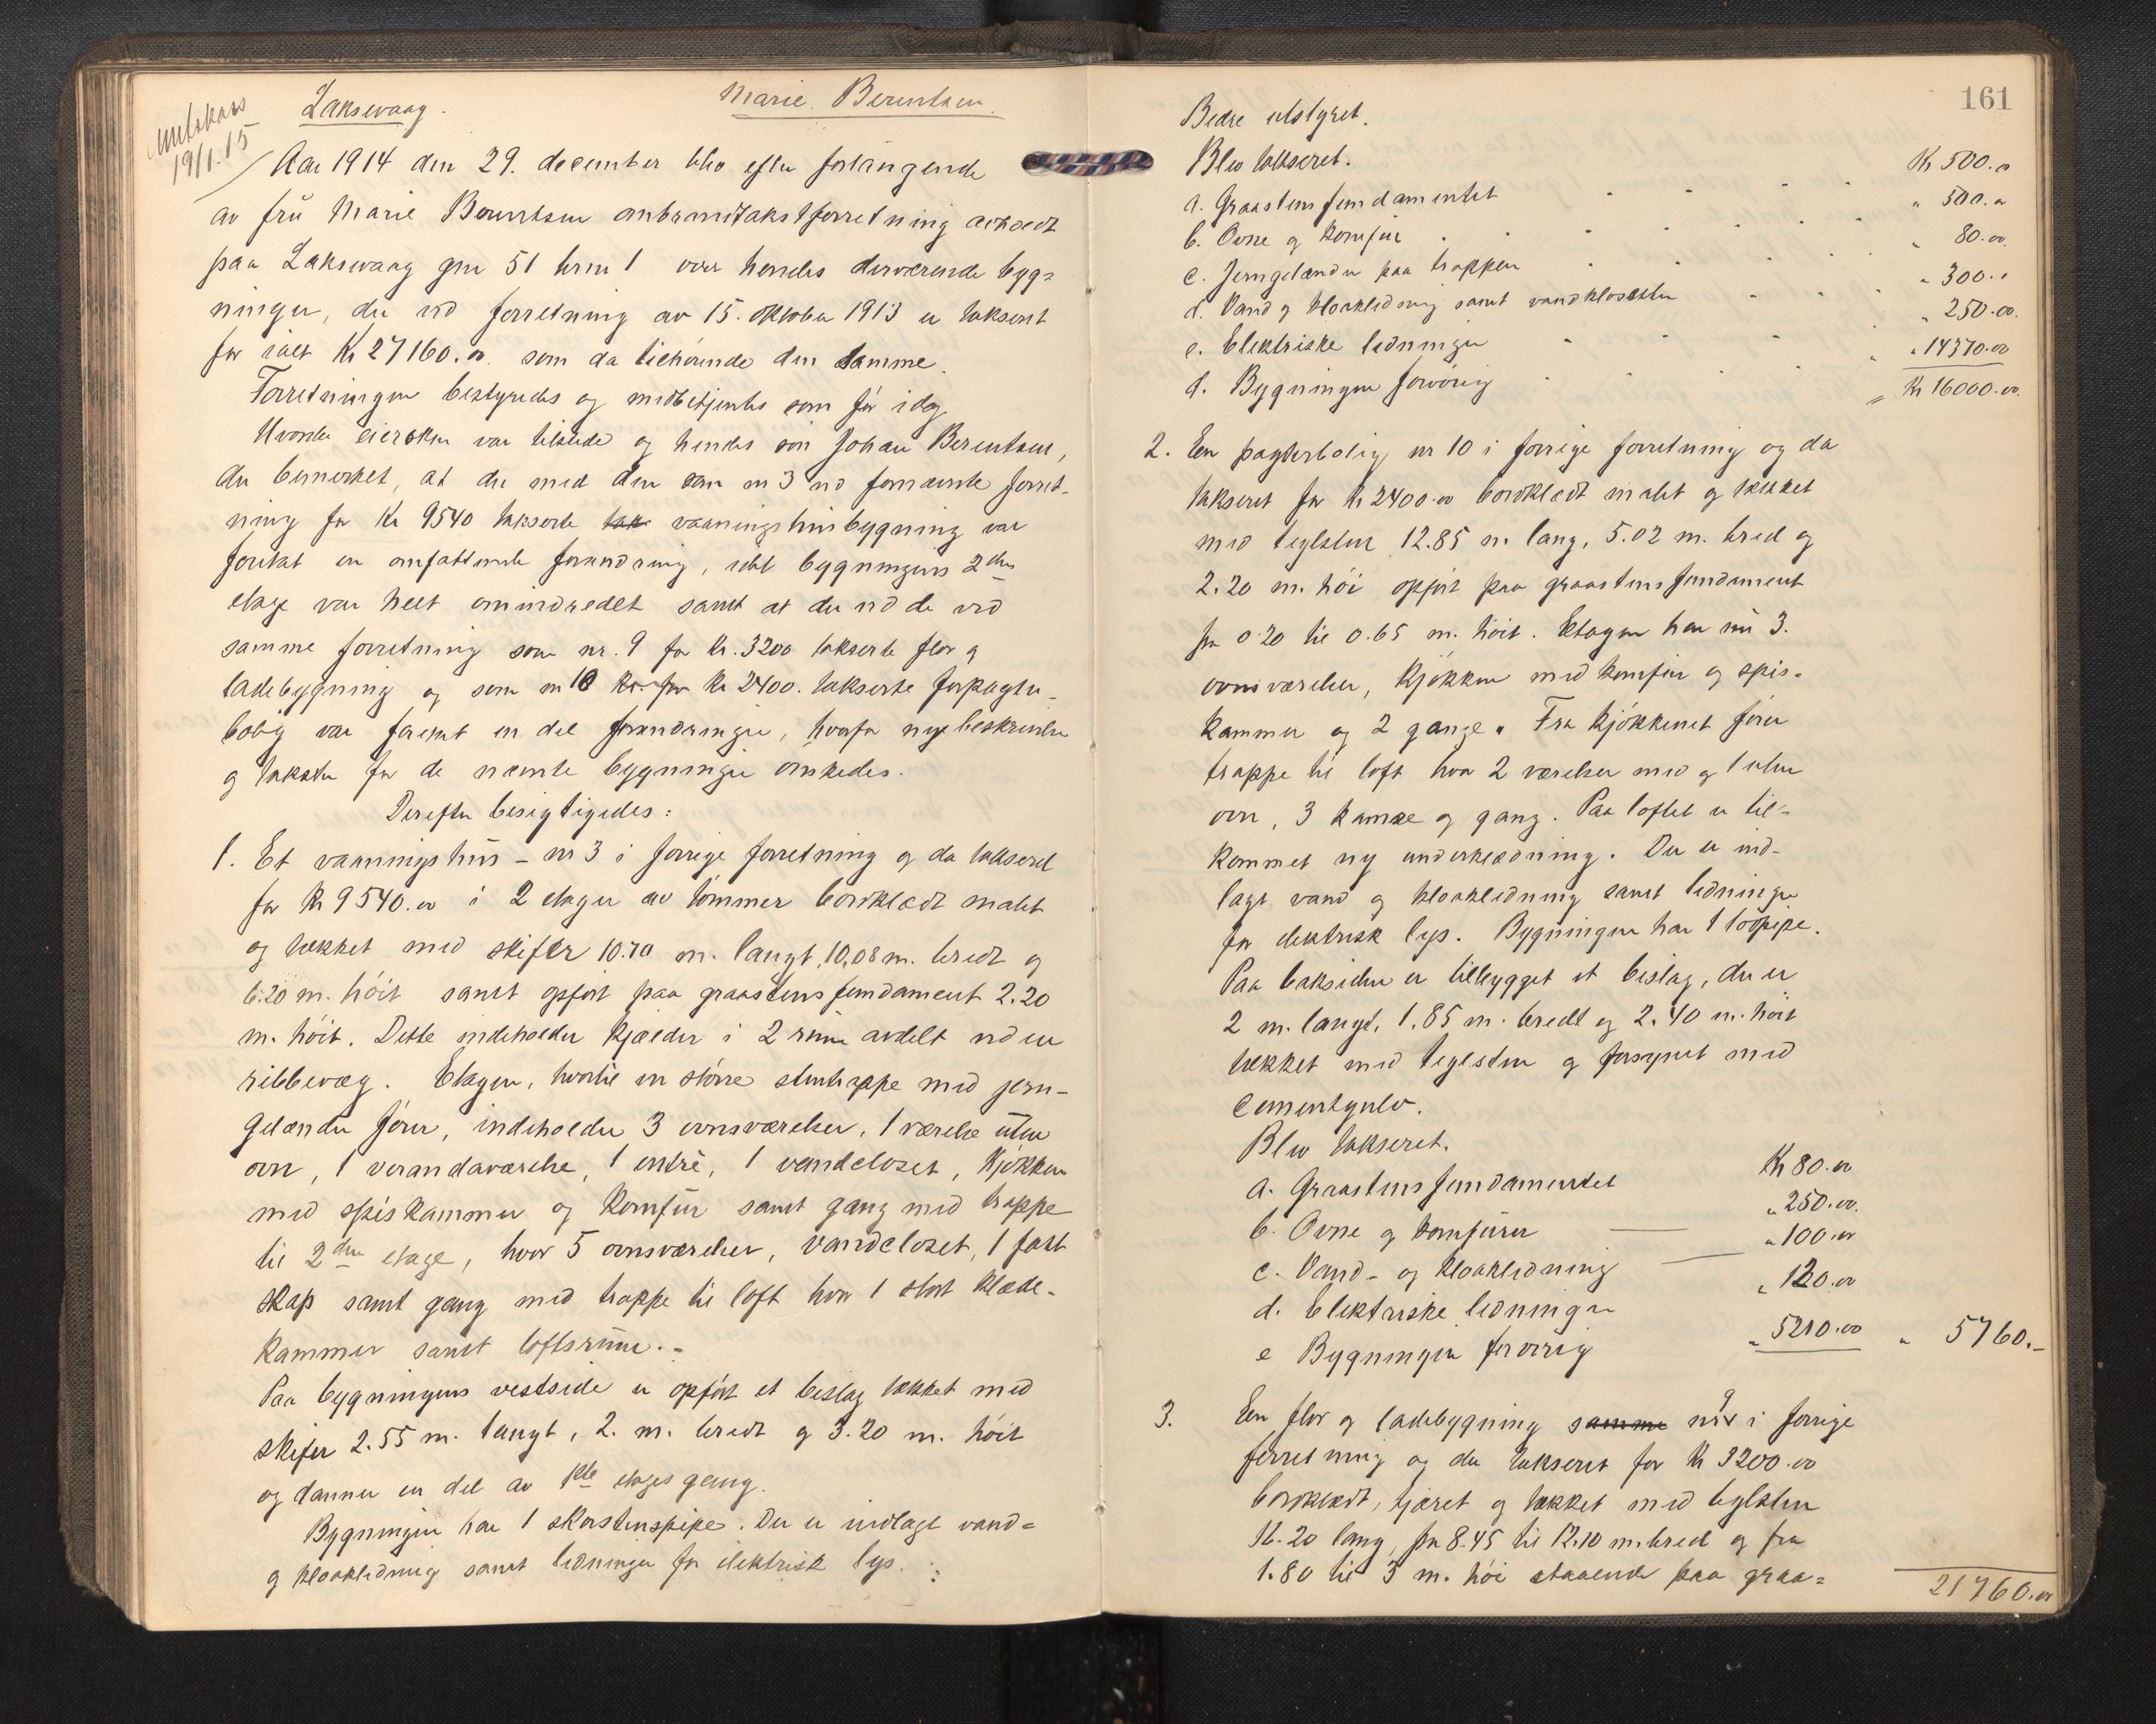 utskrevet
19/1.15
Laksevaag.
Marie Berentsen.
Aar 1914 den 29. december blev efter forlangende
av fru Marie Berentsen ombrandtakstforretning avholdt
paa Laksevaag gnr 51 brnr 1 over hendes derværende byg=
ninger, der ved forretning av 15. oktober 1913 er taksert
for ialt Kr 27160.00 som da tilhørende den samme.
Forretningen bestyredes og medbetjentes som før idag
Hvorda eiersken var tilstede og hendes søn Johan Berentsen,
der bemerket, at der med den som nr 3 ved fornævnte forret-
ning for Kr 9540 takserte tak vaaningshusbygning var
foretat en omfattende forandring, idet bygningens 2den
etage var helt omindredet samt at der ved de ved
samme forretning som nr. 9 for Kr. 3200 takserte flor og
ladebygning og som nr 10 kr. for Kr 2400. takserte forpagter-
bolig var foretat en del forandringer, hvorfor nye beskrivelser
og takster for de nævnte bygninger ønskedes.
Derefter besigtigedes:
1. Et vaaningshus - nr 3 i forrige forretning og da taksert
for Kr 9540.00 i 2 etager av tømmer bordklædt malet
og tækket med skifer 10.70 m. langt, 10,08 m. bredt og
6.20 m. høit samt opført paa graastensfundament 2.20
m. høit. Dette indeholder kjælder i 2 rum avdelt ved en
ribbevæg. Etagen, hvortil en større stentrappe med jern-
gelænder fører, indeholder 3 ovnsværelser, 1 værelse uten
ovn, 1 verandaværelse, 1 entrè, 1 vandcloset, kjøkken
med spiskammer og komfur samt gang med trappe
til 2den etage, hvor 5 ovnsværelser, vandcloset, 1 fast
skap samt gang med trappe til loft hvor 1 stort klæde-
kammer samt loftsrum.-
Paa bygningens vestside er opført et bislag tækket med
skifer 2.55 m. langt, 2. m. bredt og 3.20 m. høit
og danner en del av 1ste etages gang.
Bygningen har 1 skorstenspipe. Der er indlagt vand=
og kloakledning samt ledninger for elektrisk lys.
161
Bedre utstyret.
Blev takseret.
a. Graastensfundamentet Kr 500.00
b. Ovne og komfur " 500.00
c. Jerngelænder paa trappen " 80.00
d. Vand og kloakledning samt vandklosetter " 300.00
e. Elektriske ledninger " 250.00
f. Bygningen forøvrig " 14370.00
Kr 16000.00
2. Een pagterbolig nr 10 i forrige forretning og da
takseret for Kr 2400.00 bordklædt malet og tækket
med teglsten 12.85 m. lang, 5.02 m. bred og
2.20 m. høi opført paa graastensfundament
fra 0.20 til 0.65 m. høit. Etagen har nu 3.
ovnsværelser, kjøkken med komfur og spis-
kammer og 2 gange. Fra kjøkkenet fører
trappe til loft hvor 2 værelser med og 1 uten
ovn, 3 kamre og gang. Paa loftet er til-
kommet ny underklædning. Der er ind-
lagt vand og kloakledning samt ledninger
for elektrisk lys. Bygningen har 1 todpipe.
Paa baksiden er tilbygget et bislag, der er
2 m. langt, 1.85 m. bredt og 2.40 m. høit
tækket med teglsten og forsynet med
cementgulv.
Blev takseret.
a. Graastensfundamentet Kr 80.00
b. Ovne og komfurer " 250.00
c. Vand- og kloakledning " 100.00
d. Elektriske ledninger " 120.00
e Bygningen forøvrig " 5210.00 " 5760.-
3. Een flor og ladebygning samme nr 9 i forrige
forretning og da takseret for Kr 3200.00
bordklædt, tjæret og tækket med teglsten
16.20 lang, fra 8.45 til 12.10 m. bred og fra
1.80 til 3 m. høi staaende paa graa=
21760.00